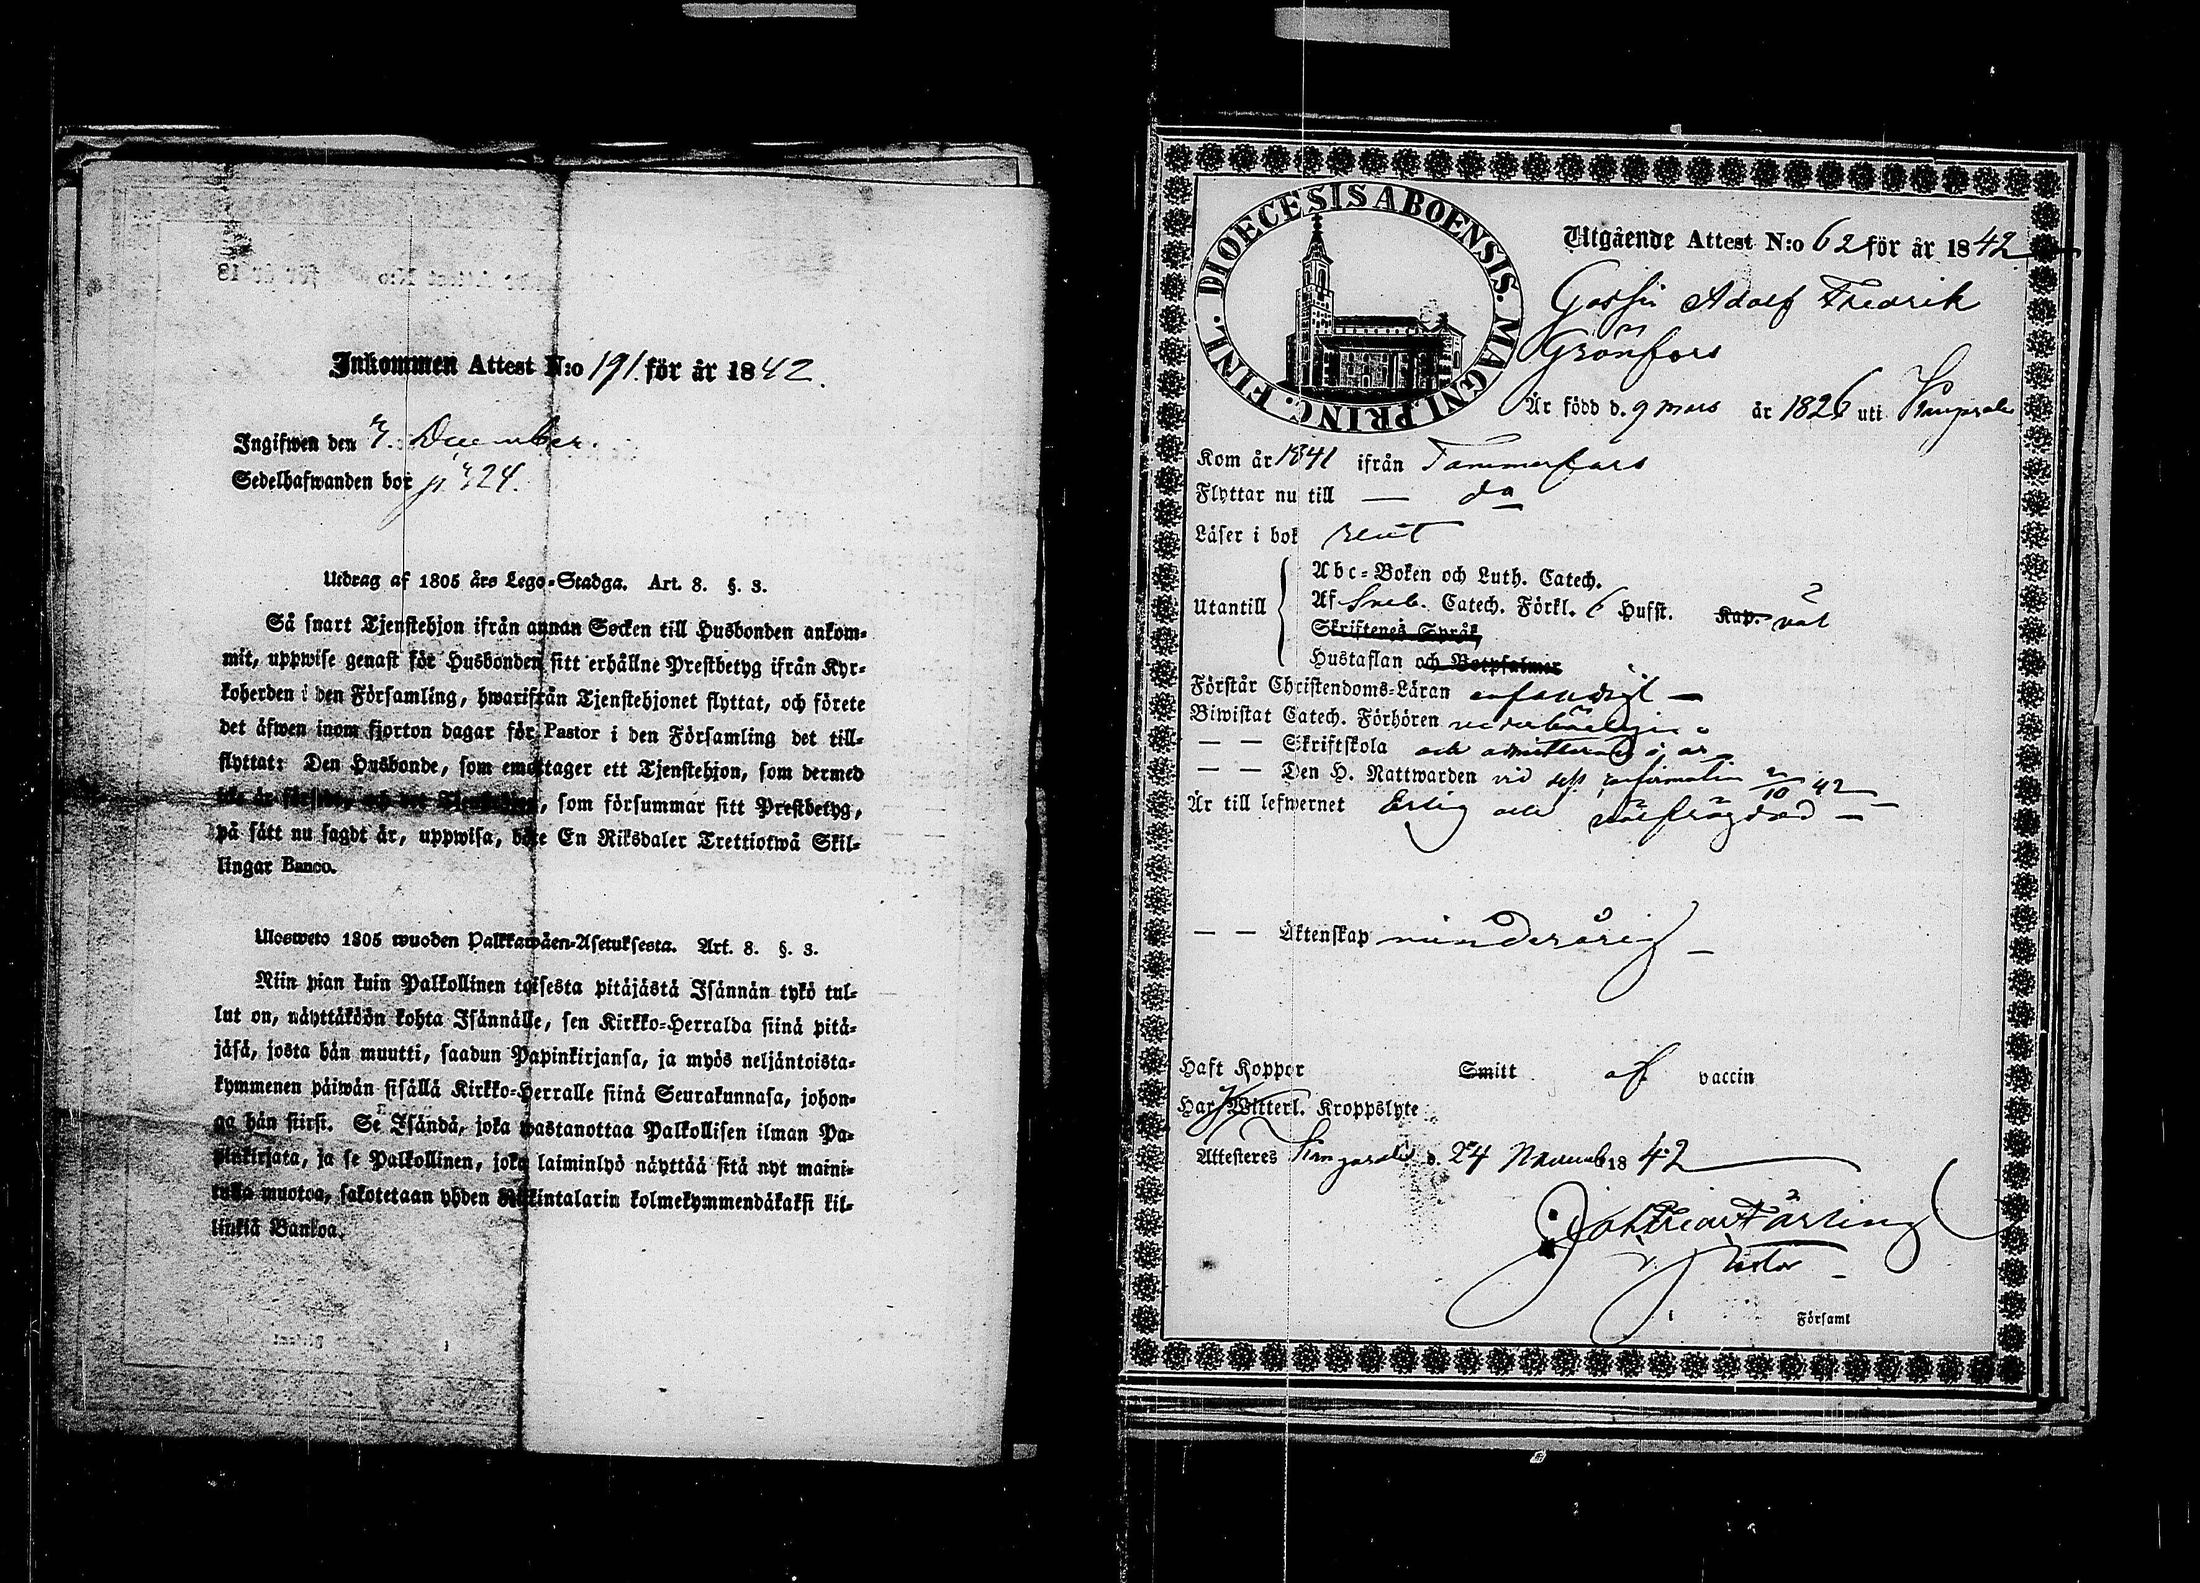 Inkommen Attest N:o 191. för år 1842.
Ingifwen den 3. December.
Sedelhafwanden bor p. 324.
Utdrag af 1805 års Lego-Stadga. Art. 8. §. 3.
Så snart Tjenstehjon ifrån annan Socken till Husbonden ankom-
mit, uppwise genast för Husbonden sitt erhållne Prestbetyg ifrån Kyr-
koherden i den Församling, hwarifrån Tjenstehjonet flyttat, och förete
det äfwen inom fjorton dagar för Pastor i den Församling det till-
flyttat: Den Husbonde, som emottager ett Tjenstehjon, som dermed
icke är försedt, och det Tjenstehjon, som försummar sitt Prestbetyg,
på sätt nu sagdt är, uppwisa, böte En Riksdaler Trettiotwå Skil-
lingar Banco.
Ulosweto 1805 wuoden Palkkawäen-Asetuksesta. Art. 8. §. 3.
Niin pian kuin Palkollinen toisesta pitäjästä Isännän tykö tul-
lut on, näyttäköön kohta Isännälle, sen Kirkko-Herralda siinä pitä-
jäsä, josta hän muutti, saadun Papinkirjansa, ja myös neljäntoista-
kymmenen päiwän sisällä Kirkko-Herralle siinä Seurakunnasa, johon-
ga hän siirsi. Se Isändä, joka wastanottaa Palkollisen ilman Pa-
pinkirjata, ja se Palkollinen, joka laiminlyö näyttää sitä nyt maini-
tulla muotoa, sakotetaan yhden Riikintalarin kolmekymmendäkaksi kil-
linkiä Bankoa.
DIOECESIS ABOENSIS. MAGNI. PRINC. FINL.
Utgående Attest N:o 62 för år 1842
Gossen Adolf Fredrik
Grönfors
Är född d. 9 Mars år 1826 uti Kangasala
Kom år 1841 ifrån Tammerfors
Flyttar nu till — do
Läser i bok rent
Utantill
Abc-Boken och Luth. Catech.
Af Sveb. Catech. Förkl. 6 Hufst. Kap. väl
Skriftenes Språk,
Hustaflan och Botpsalmer
Förstår Christendoms-Läran enfaldigt —
Biwistat Catech. Förhören vederbörligen
— — Skriftskola och admitterad i år
— — Den H. Nattwarden vid dess confirmation 2/10 42
Är till lefwernet Ärlig och välfrägdad —
— — Äktenskap minderårig —
Haft Koppor Smitt af vaccin
Har Witterl. Kroppslyte
Attesteras Kangasala d. 24 Novemb 1842
Joh Fredr Färling
v. Pastor
i Församl